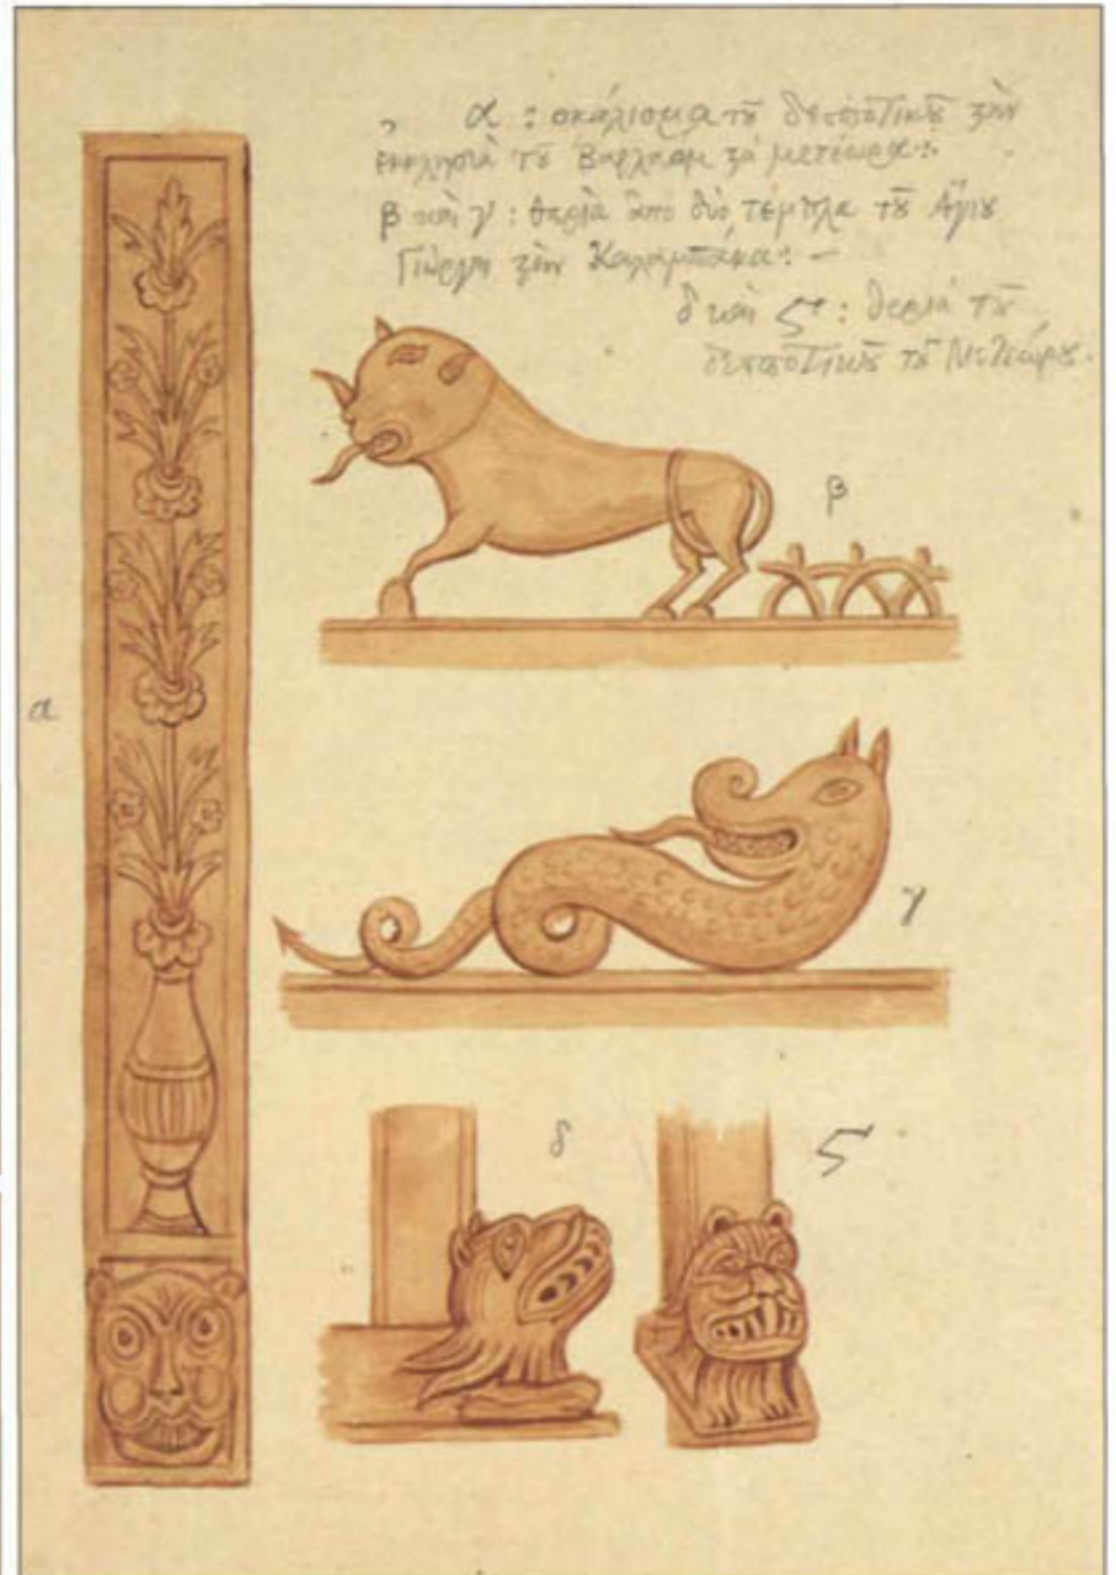 α : σκάλισμα τȣ̃ δεσποτικȣ̃ στὴν
ἐκκλησιὰ τȣ̃ Βαρλαὰμ στὰ μετέωρα:
β καὶ γ : θεριὰ ἀπὸ δύο τέμπλα τȣ̃ Ἁγίȣ
Γιώργη στὴν Καλαμπάκα: –
δ καὶ ς : θεριὰ τȣ̃
δεσποτικȣ̃ τȣ̃ Μετεώρȣ.
β
α
γ
δ
ς